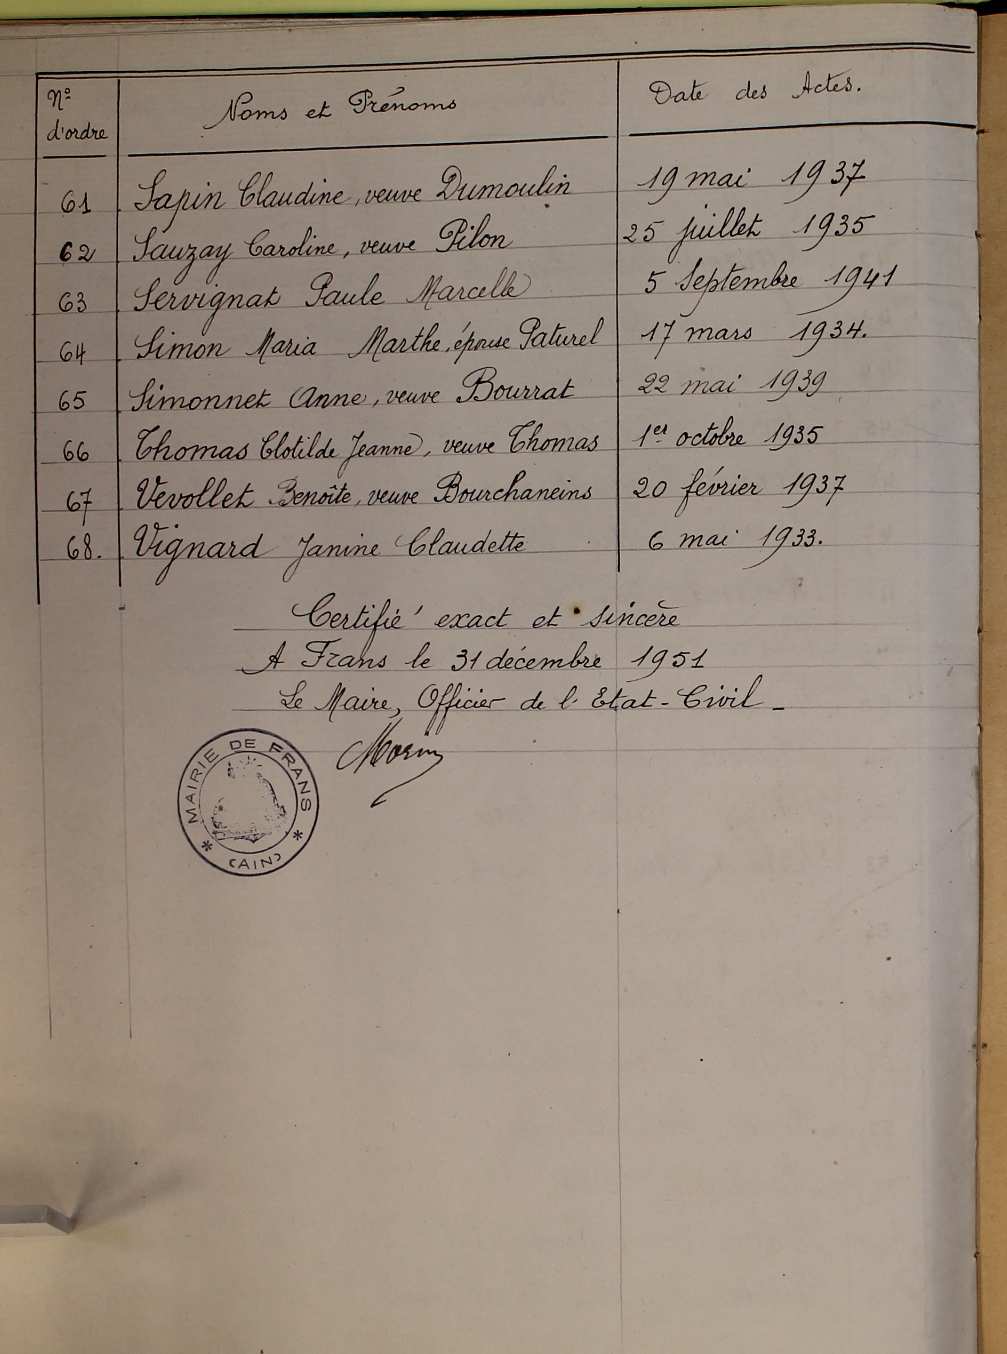 Nº d'ordre Noms et Prénoms Date des Actes.
61 Sapin Claudine, veuve Dumoulin 19 mai 1937
62 Sauzay Caroline, veuve Pilon 25 juillet 1935
63 Servignat Paule Marcelle 5 Septembre 1941
64 Simon Maria Marthe, épouse Paturel 17 mars 1934.
65 Simonnet Anne, veuve Bourrat 22 mai 1939
66 Thomas Clotilde Jeanne, veuve Thomas 1er octobre 1935
67 Vevollet Benoîte, veuve Bourchaneins 20 février 1937
68. Vignard Janine Claudette 6 mai 1933.
Certifié exact et sincère
A Frans le 31 décembre 1951
Le Maire, Officier de l'Etat-Civil -
Morin
MAIRIE DE FRANS
* (AIN) *